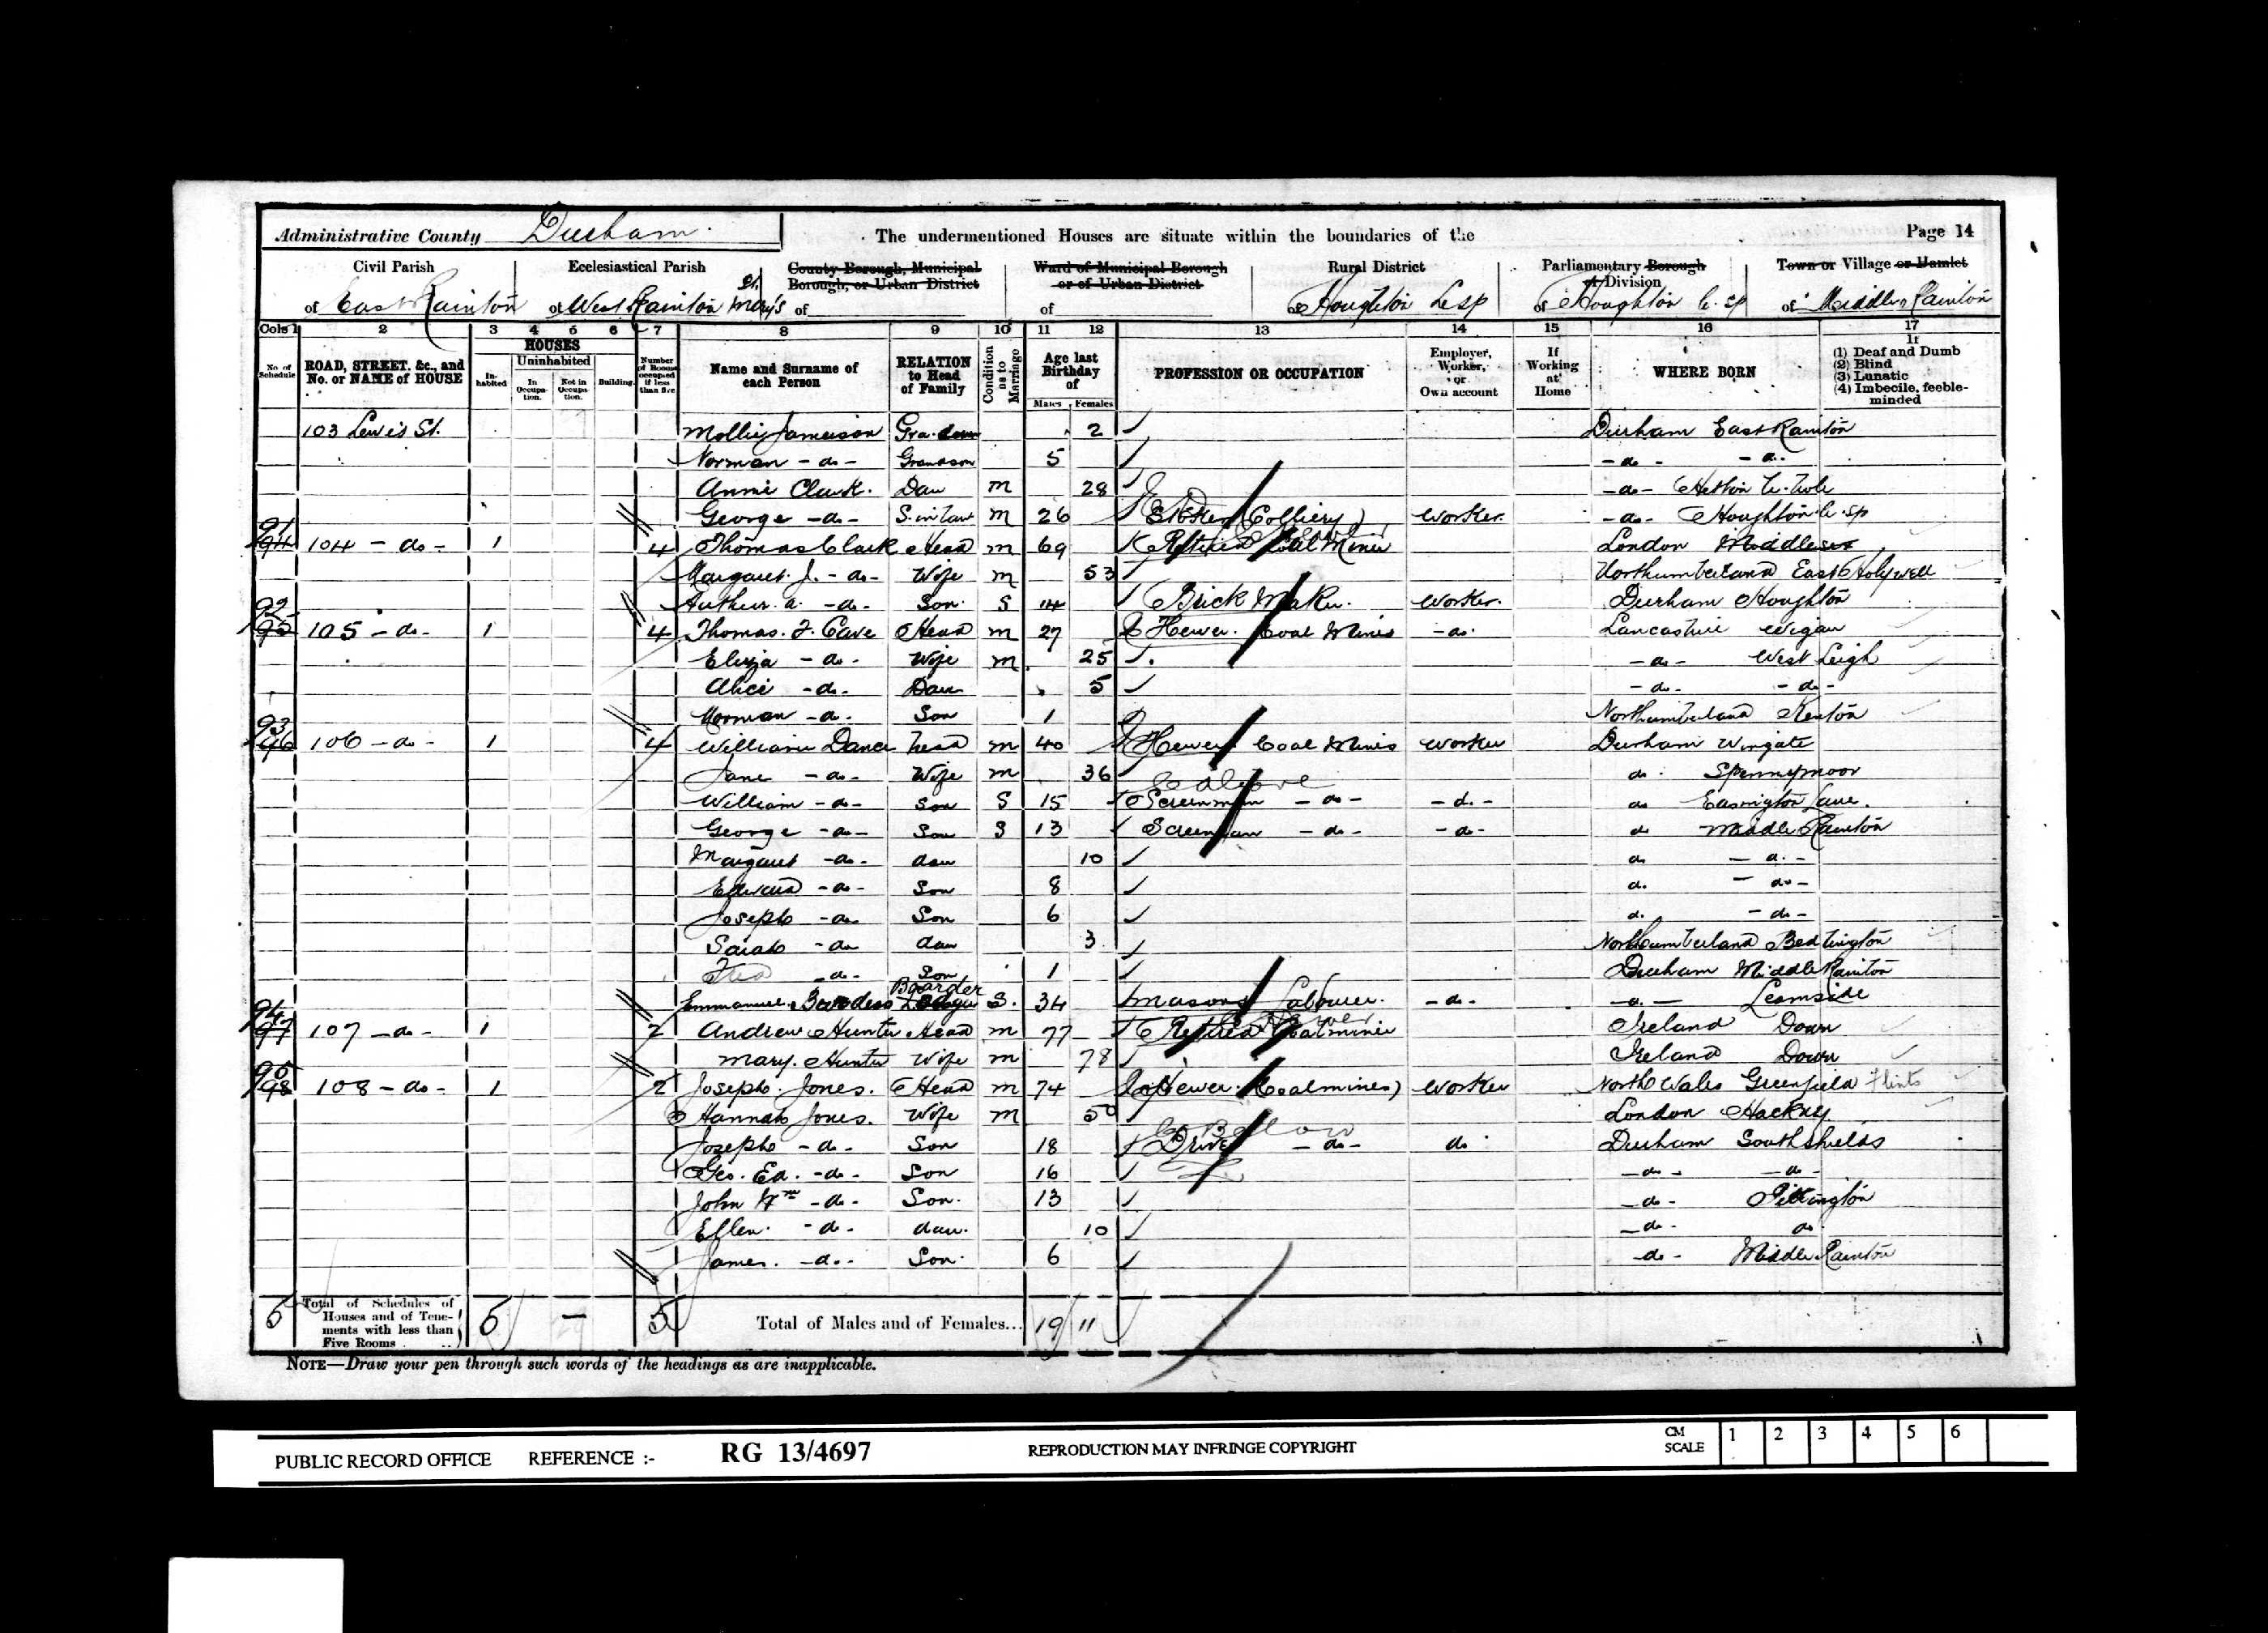 Administrative County Durham.
The undermentioned Houses are situate within the boundaries of the
Page 14
Civil Parish of East Rainton
Ecclesiastical Parish of West Rainton St. Mary's
County Borough, Municipal Borough, or Urban District of
Ward of Municipal Borough or of Urban District of
Rural District of Houghton le Sp
Parliamentary Borough or Division of Houghton le. Sp
Town or Village or Hamlet of Middle Rainton
Cols 1 2 3 4 5 6 7 8 9 10 11 12 13 14 15 16 17
No. of Schedule
ROAD, STREET, &c., and No. or NAME of HOUSE
HOUSES
Inhabited
Uninhabited
In Occupation.
Not in Occupation.
Building.
Number of Rooms occupied if less than five
Name and Surname of each Person
RELATION to Head of Family
Condition as to Marriage
Age last Birthday of
Males Females
PROFESSION OR OCCUPATION
Employer, Worker, or Own account
If Working at Home
WHERE BORN
If
(1) Deaf and Dumb
(2) Blind
(3) Lunatic
(4) Imbecile, feeble-minded
103 Lewis St. Mollie Jameison Gra. dau 2 Durham East Rainton
Norman -do- Grandson 5 -do- -do-
Annie Clark. Dau m 28 -do- Hetton le. Hole
George -do- S. in law m 26 Stoker (Colliery) Worker. -do- Houghton le. sp
91 94 104 -do- 1 4 Thomas Clark Head m 69 Retired Coal Miner London Middlesex
Margaret. J. -do- Wife m 53 Northumberland East Holywell
Arthur. a. -do- Son. S 14 Brick Maker. Worker. Durham Houghton
92 95 105 -do- 1 4 Thomas. F. Cave Head m 27 Hewer. Coal Mines -do- Lancashire Wigan
Eliza -do- Wife m 25 -do- West Leigh
Alice -do- Dau 5 -do- -do-
Norman -do- Son 1 Northumberland Kenton
93 96 106 -do- 1 4 William Dance head m 40 Hewer Coal Mines Worker Durham Wingate
Jane -do- Wife m 36 do. Spennymoor
William -do- Son S 15 Screenman -do- -do- do Easington Lane.
George -do- Son S 13 Screenman -do- -do- do Middle Rainton
Margaret -do- dau 10 do -do-
Edward -do- Son 8 do. -do-
Joseph -do- Son 6 do. -do-
Sarah -do dau 3 Northumberland Bedlington
Fred -do- Son 1 Durham Middle Rainton
Emmanuel Boarder Lodger S. 34 Masons Labourer. -do- -do- Leamside
94 97 107 -do- 1 2 Andrew Hunter Head m 77 Retired Coalminer Ireland Down
Mary. Hunter Wife m 78 Ireland Down
95 98 108 -do- 1 2 Joseph. Jones. Head m 74 Hewer. (Coalmines) Worker North Wales Greenfield Flints
Hannah Jones. Wife m 50 London Hackny
Joseph -do- Son 18 Driver -do- do Durham South Shields
Geo. Ed. -do- Son 16 -do- -do-
John Wm -do- Son. 13 -do- Pittington
Ellen. -do- dau. 10 -do- do
James. -do- Son. 6 -do- Middle Rainton
5 Total of Schedules of Houses and of Tenements with less than Five Rooms 5 - 5 Total of Males and of Females... 19 11
NOTE—Draw your pen through such words of the headings as are inapplicable.
PUBLIC RECORD OFFICE REFERENCE :- RG 13/4697 REPRODUCTION MAY INFRINGE COPYRIGHT CM SCALE 1 2 3 4 5 6